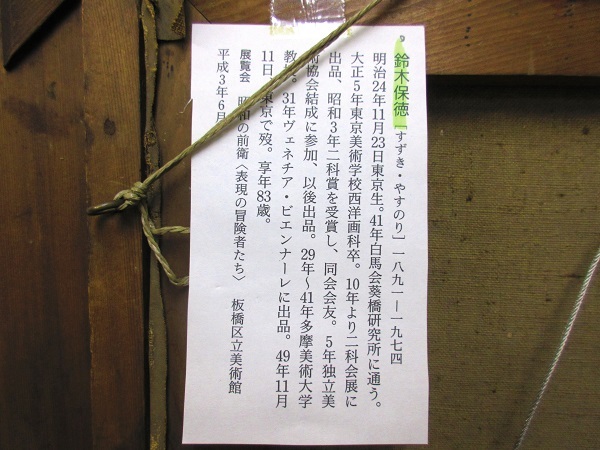 鈴木保徳［すずき・やすのり］一八九一―一九七四
明治24年11月23日東京生。41年白馬会葵橋研究所に通う。
大正5年東京美術学校西洋画科卒。10年より二科会展に
出品、昭和3年二科賞を受賞し、同会会友。5年独立美
術協会結成に参加、以後出品。29年～41年多摩美術大学
教授。31年ヴェネチア・ビエンナーレに出品。49年11月
11日 東京で歿。享年83歳。
展覧会 昭和の前衛〈表現の冒険者たち〉 板橋区立美術館
平成3年6月